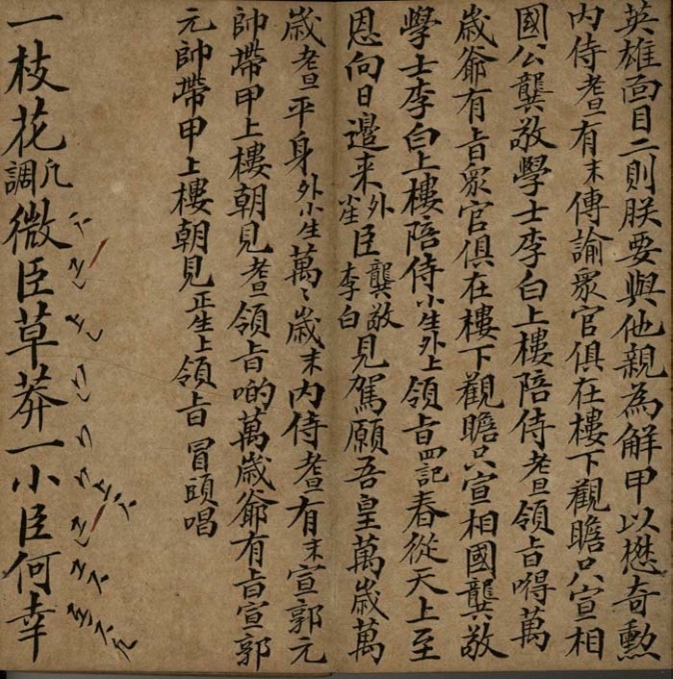 英雄面目二則朕要與他親為解甲以懋奇勲
内侍老旦有末傳諭衆官俱在樓下觀瞻只宣相
國公龔敬學士李白上樓陪侍老旦領旨嘚萬
歲爺有旨衆官俱在樓下觀瞻只宣相國龔敬
學士李白上樓陪侍小生外上領旨四記春從天上至
恩向日邉来外小生臣龔敬李白見駕願吾皇萬歲萬
歲老旦平身外小生萬〻歲末内侍老旦有末宣郭元
帥帶甲上樓朝見老旦領旨喲萬歲爺有旨宣郭
元帥帶甲上樓朝見正生上領旨冒頭唱
一枝花凡調微臣草莽一小臣何幸